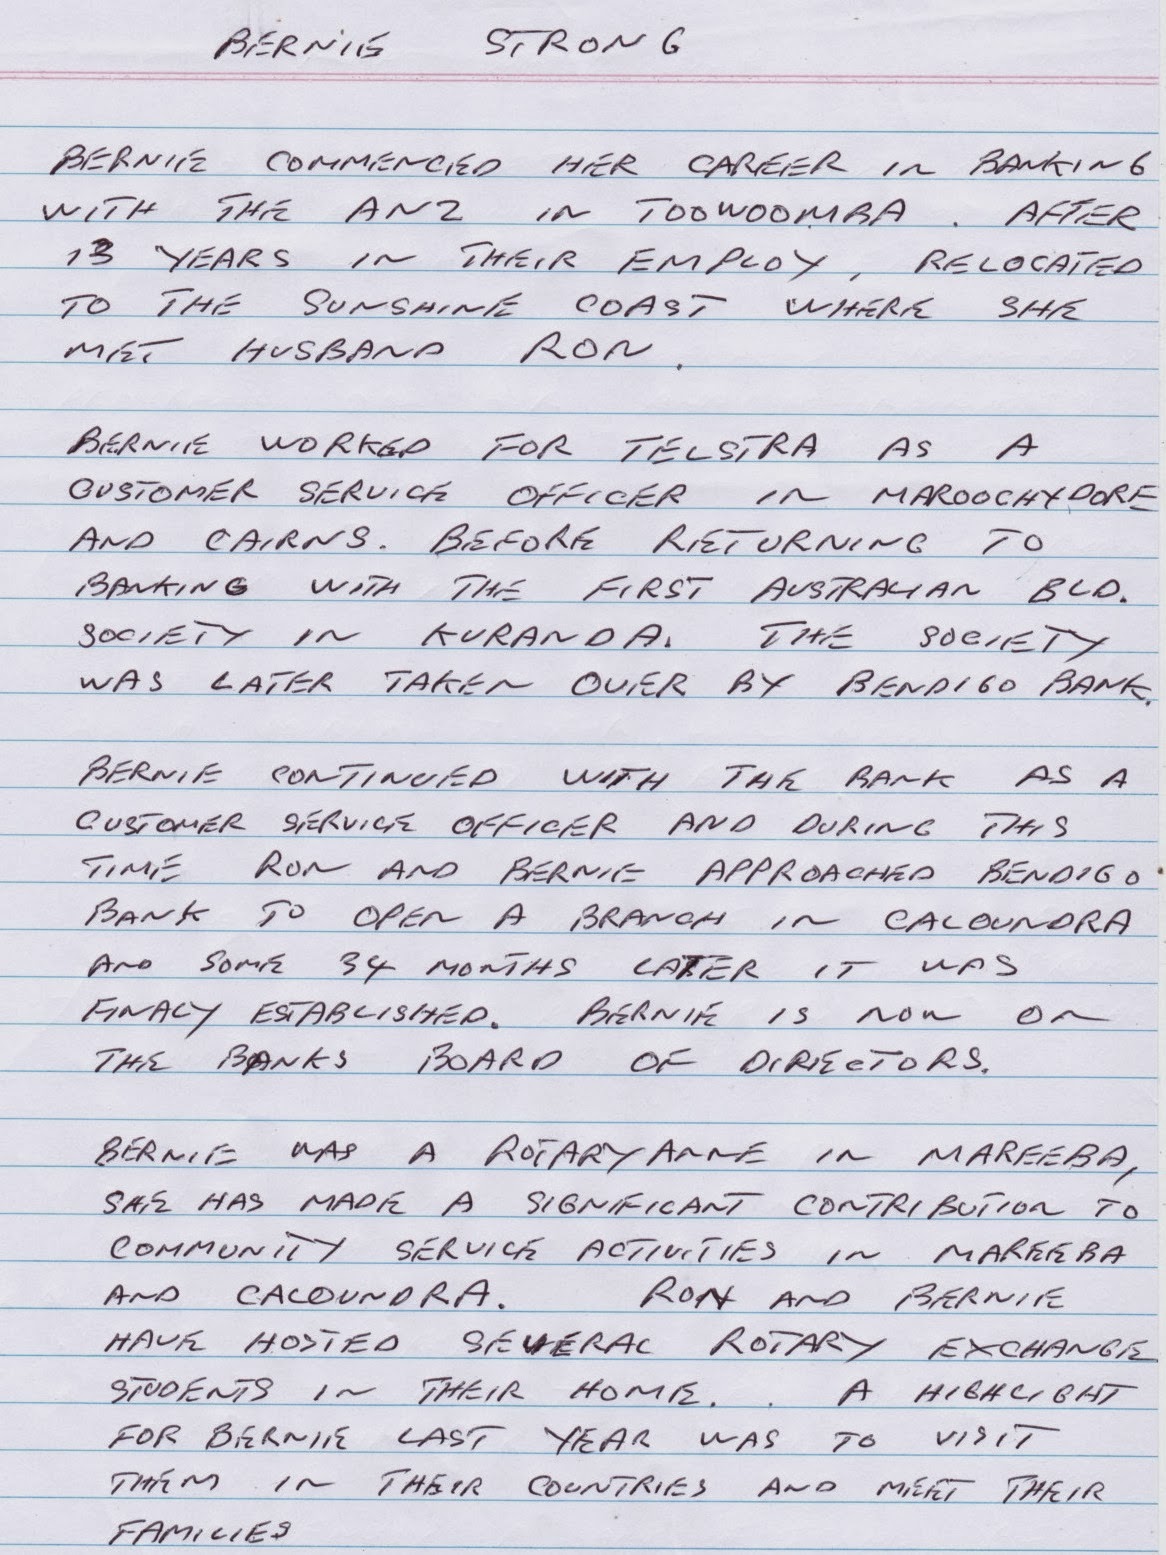 BERNIE STRONG
BERNIE COMMENCED HER CAREER IN BANKING
WITH THE ANZ IN TOOWOOMBA. AFTER
13 YEARS IN THEIR EMPLOY, RELOCATED
TO THE SUNSHINE COAST WHERE SHE
MET HUSBAND RON.
BERNIE WORKED FOR TELSTRA AS A
CUSTOMER SERVICE OFFICER IN MAROOCHYDORE
AND CAIRNS. BEFORE RETURNING TO
BANKING WITH THE FIRST AUSTRALIAN BLD.
SOCIETY IN KURANDA. THE SOCIETY
WAS LATER TAKEN OVER BY BENDIGO BANK.
BERNIE CONTINUED WITH THE BANK AS A
CUSTOMER SERVICE OFFICER AND DURING THIS
TIME RON AND BERNIE APPROACHED BENDIGO
BANK TO OPEN A BRANCH IN CALOUNDRA
AND SOME 34 MONTHS LATER IT WAS
FINALY ESTABLISHED. BERNIE IS NOW ON
THE BANKS BOARD OF DIRECTORS.
BERNIE WAS A ROTARYANNE IN MAREEBA,
SHE HAS MADE A SIGNIFICANT CONTRIBUTION TO
COMMUNITY SERVICE ACTIVITIES IN MAREEBA
AND CALOUNDRA. RON AND BERNIE
HAVE HOSTED SEVERAL ROTARY EXCHANGE
STUDENTS IN THEIR HOME. . A HIGHLIGHT
FOR BERNIE LAST YEAR WAS TO VISIT
THEM IN THEIR COUNTRIES AND MEET THEIR
FAMILIES